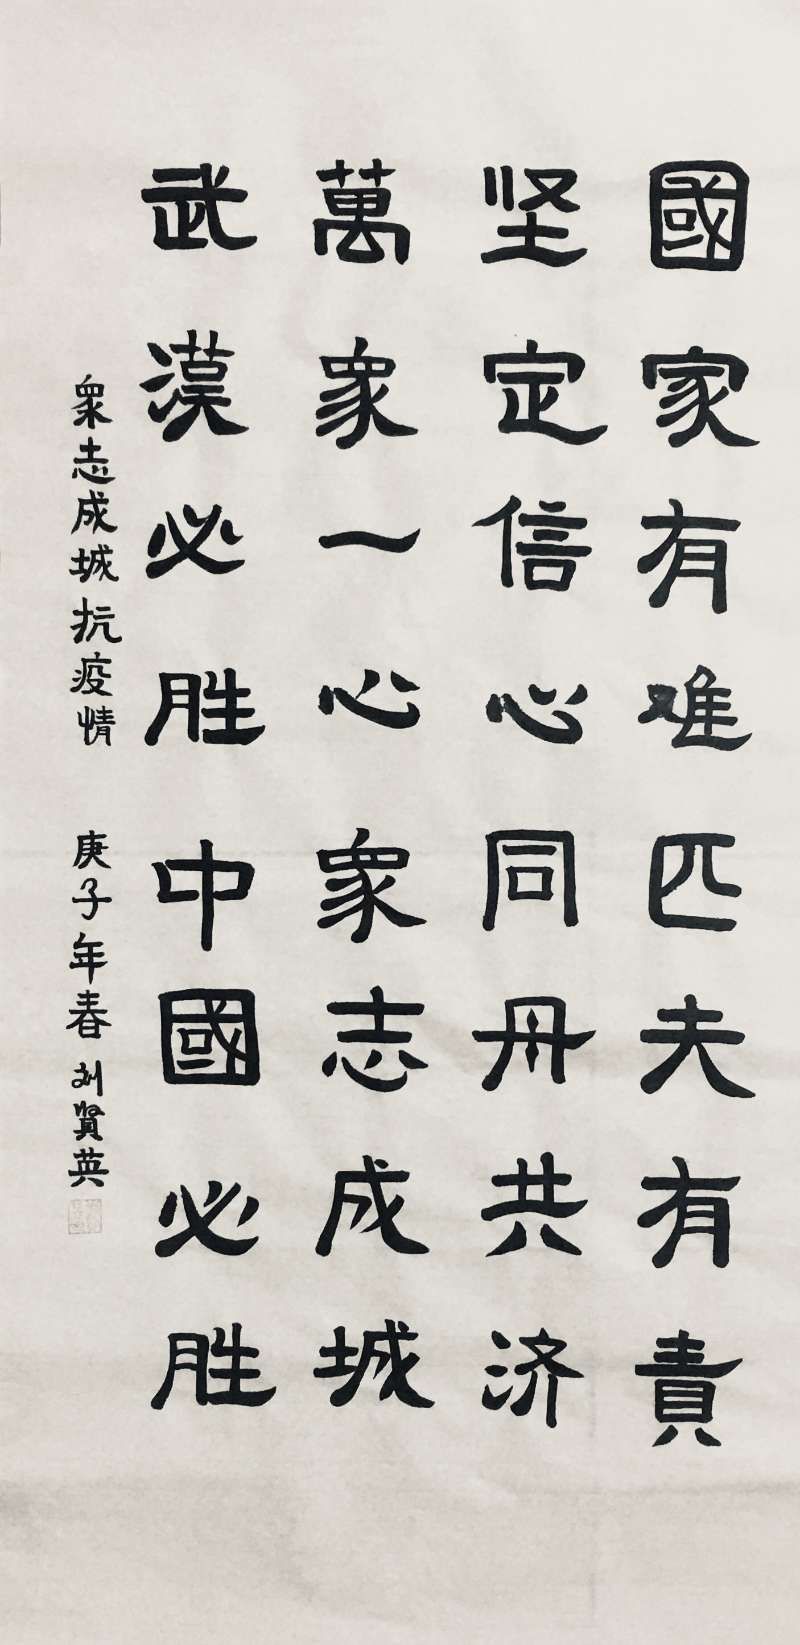 國家有难匹夫有責
坚定信心同舟共济
萬眾一心眾志成城
武漢必胜中國必胜
眾志成城抗疫情 庚子年春 刘賢英